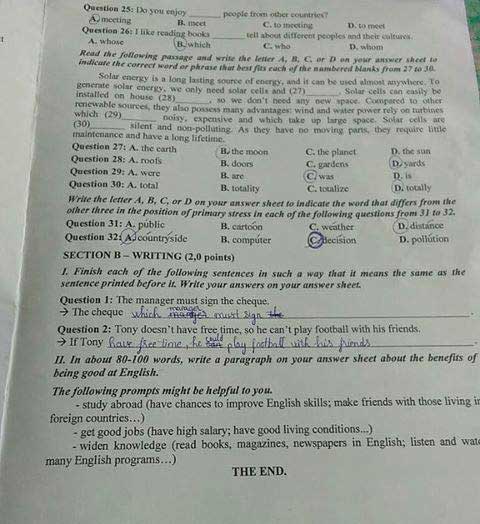 Question 25: Do you enjoy ________ people from other countries?
A. meeting B. meet C. to meeting D. to meet
Question 26: I like reading books ________ tell about different peoples and their cultures.
A. whose B. which C. who D. whom
Read the following passage and write the letter A, B, C, or D on your answer sheet to
indicate the correct word or phrase that best fits each of the numbered blanks from 27 to 30.
Solar energy is a long lasting source of energy, and it can be used almost anywhere. To
generate solar energy, we only need solar cells and (27)________. Solar cells can easily be
installed on house (28)________, so we don't need any new space. Compared to other
renewable sources, they also possess many advantages: wind and water power rely on turbines
which (29)________ noisy, expensive and which take up large space. Solar cells are
(30)________ silent and non-polluting. As they have no moving parts, they require little
maintenance and have a long lifetime.
Question 27: A. the earth B. the moon C. the planet D. the sun
Question 28: A. roofs B. doors C. gardens D. yards
Question 29: A. were B. are C. was D. is
Question 30: A. total B. totality C. totalize D. totally
Write the letter A, B, C, or D on your answer sheet to indicate the word that differs from the
other three in the position of primary stress in each of the following questions from 31 to 32.
Question 31: A. public B. cartoon C. weather D. distance
Question 32: A. countryside B. computer C. decision D. pollution
SECTION B – WRITING (2,0 points)
I. Finish each of the following sentences in such a way that it means the same as the
sentence printed before it. Write your answers on your answer sheet.
Question 1: The manager must sign the cheque.
→ The cheque which manager must sign the
Question 2: Tony doesn't have free time, so he can't play football with his friends.
→ If Tony have free time, he could play football with his friends
II. In about 80-100 words, write a paragraph on your answer sheet about the benefits of
being good at English.
The following prompts might be helpful to you.
- study abroad (have chances to improve English skills; make friends with those living in
foreign countries…)
- get good jobs (have high salary; have good living conditions...)
- widen knowledge (read books, magazines, newspapers in English; listen and
many English programs…)
THE END.